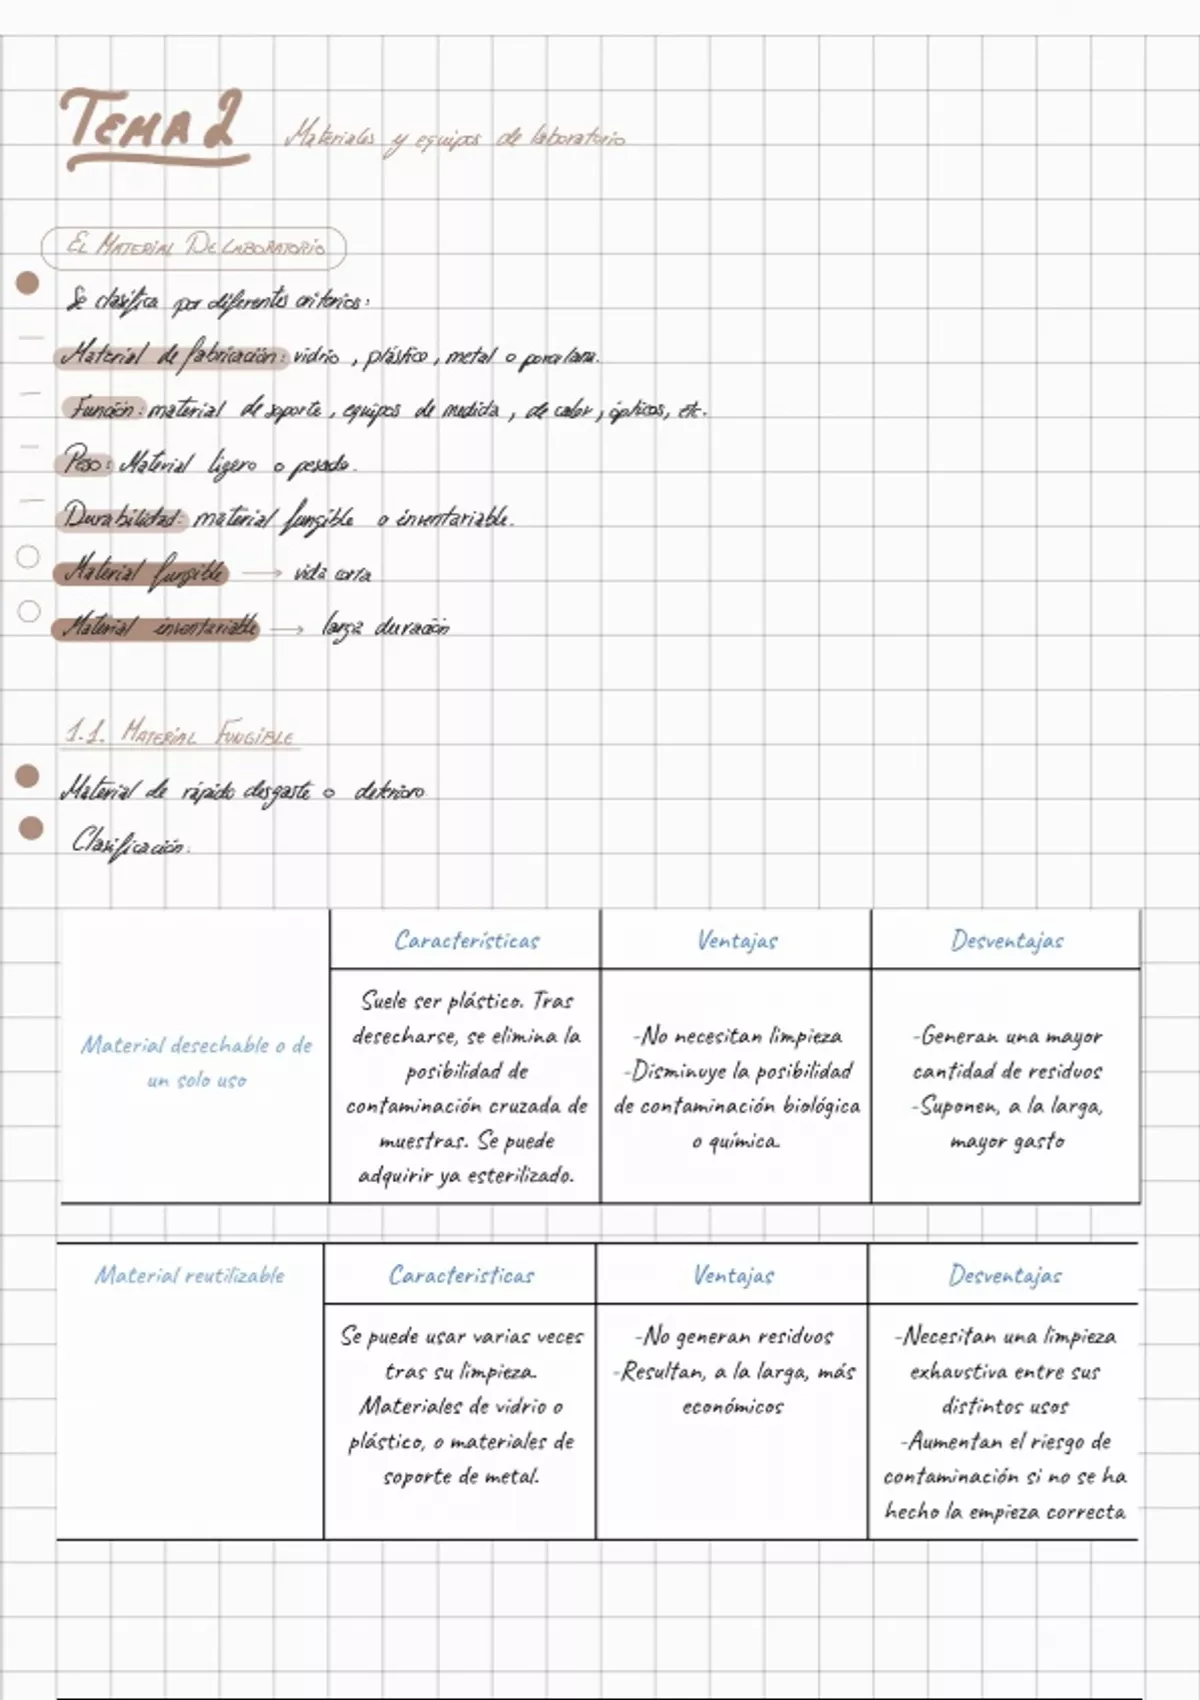 TEMA 2 Materiales y equipos de laboratorio
EL MATERIAL DE LABORATORIO
Se clasifica por diferentes criterios:
Material de fabricación: vidrio, plástico, metal o porcelana.
Función: material de soporte, equipos de medida, de calor, ópticos, etc.
Peso: Material ligero o pesado.
Durabilidad: material fungible o inventariable.
Material fungible → vida corta
Material inventariable → larga duración
1.1. MATERIAL FUNGIBLE
Material de rápido desgaste o deterioro
Clasificación:
Características
Ventajas
Desventajas
Material desechable o de
un solo uso
Suele ser plástico. Tras
desecharse, se elimina la
posibilidad de
contaminación cruzada de
muestras. Se puede
adquirir ya esterilizado.
-No necesitan limpieza
-Disminuye la posibilidad
de contaminación biológica
o química.
-Generan una mayor
cantidad de residuos
-Suponen, a la larga,
mayor gasto
Material reutilizable
Caracteristicas
Ventajas
Desventajas
Se puede usar varias veces
tras su limpieza.
Materiales de vidrio o
plástico, o materiales de
soporte de metal.
-No generan residuos
-Resultan, a la larga, más
económicos
-Necesitan una limpieza
exhaustiva entre sus
distintos usos
-Aumentan el riesgo de
contaminación si no se ha
hecho la empieza correcta